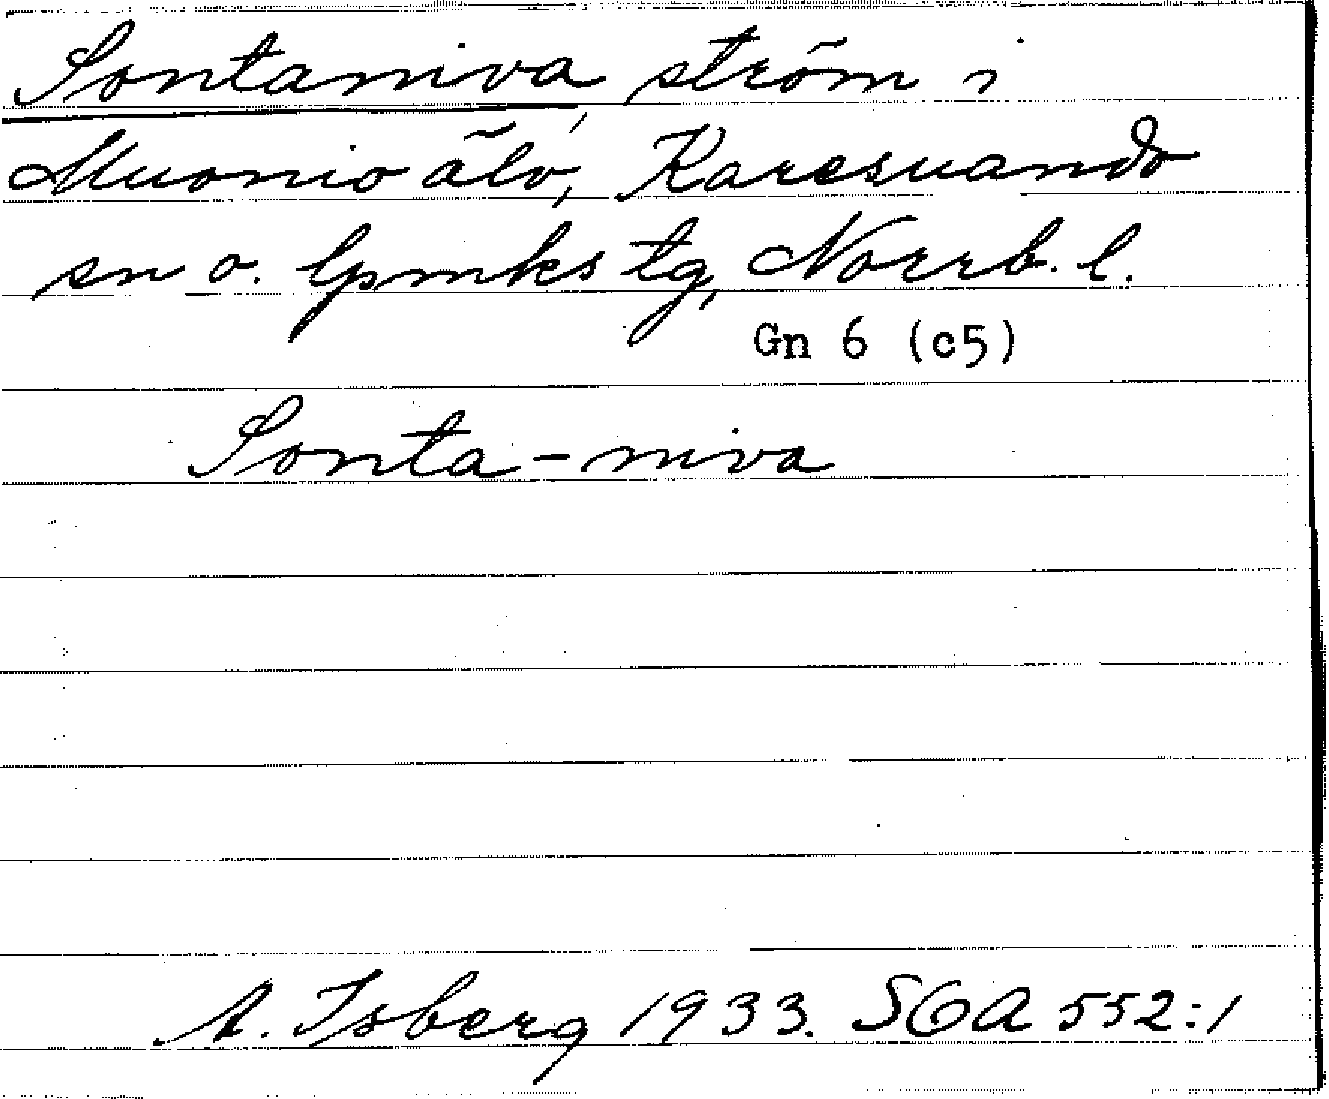 Sontaniva, ström i
Muonio älv, Karesuando
sn o. lpmks tg, Norrb. l.
Gn 6 (c5)
Sonta-niva
A. Isberg 1933. SOA 552:1